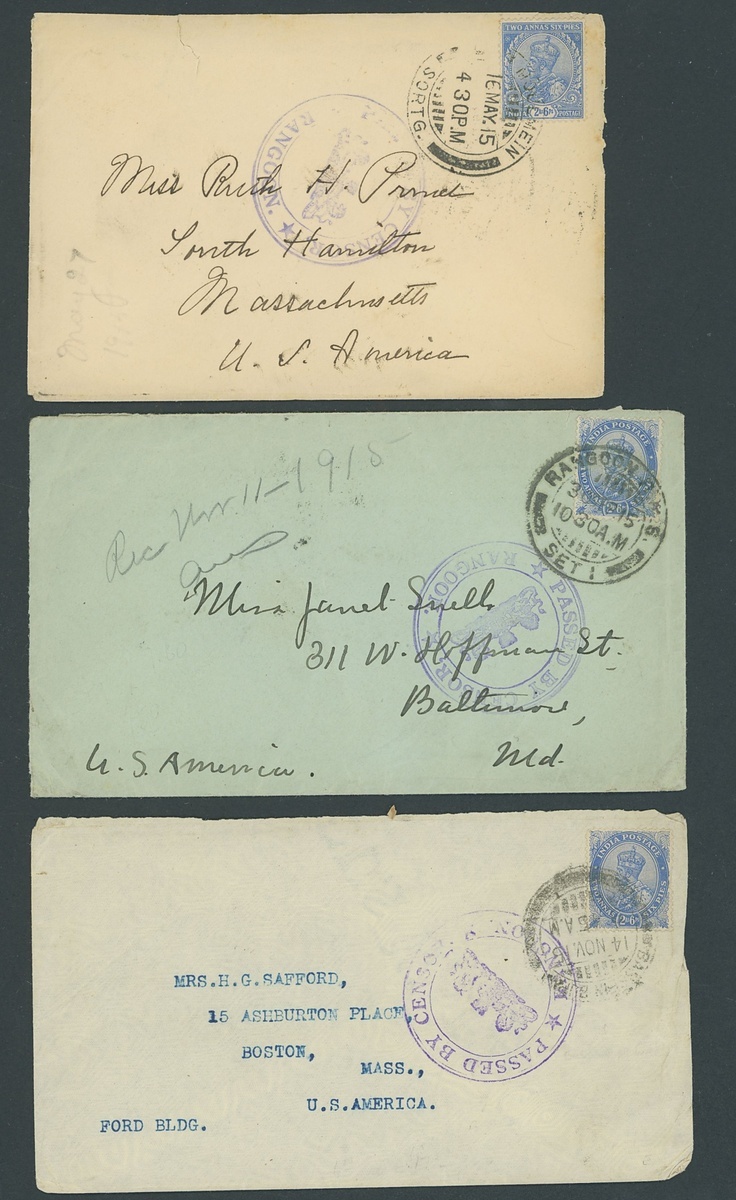 TWO ANNAS SIX PIES
2As6p
POSTAGE
MOULMEIN
16 MAY. 15
4 30 P.M
SORTG.
BY CENSOR
RANGOON.
Miss Ruth H. Prince
South Hamilton
Massachusetts
U. S. America
May 27
INDIA POSTAGE
RANGOON
15
10·30 A.M
SET 1
PASSED BY CENSOR
RANGOON.
Rec Nov. 11-1915
ans
Miss Janet Snell
311 W. Hoffman St.
Baltimore,
Md.
U. S. America.
INDIA POSTAGE
TWO ANNAS SIX PIES
2As6p
A.M
14 NOV.
PASSED BY CENSOR
MRS.H.G.SAFFORD,
15 ASHBURTON PLACE,
BOSTON,
MASS.,
U.S.AMERICA.
FORD BLDG.